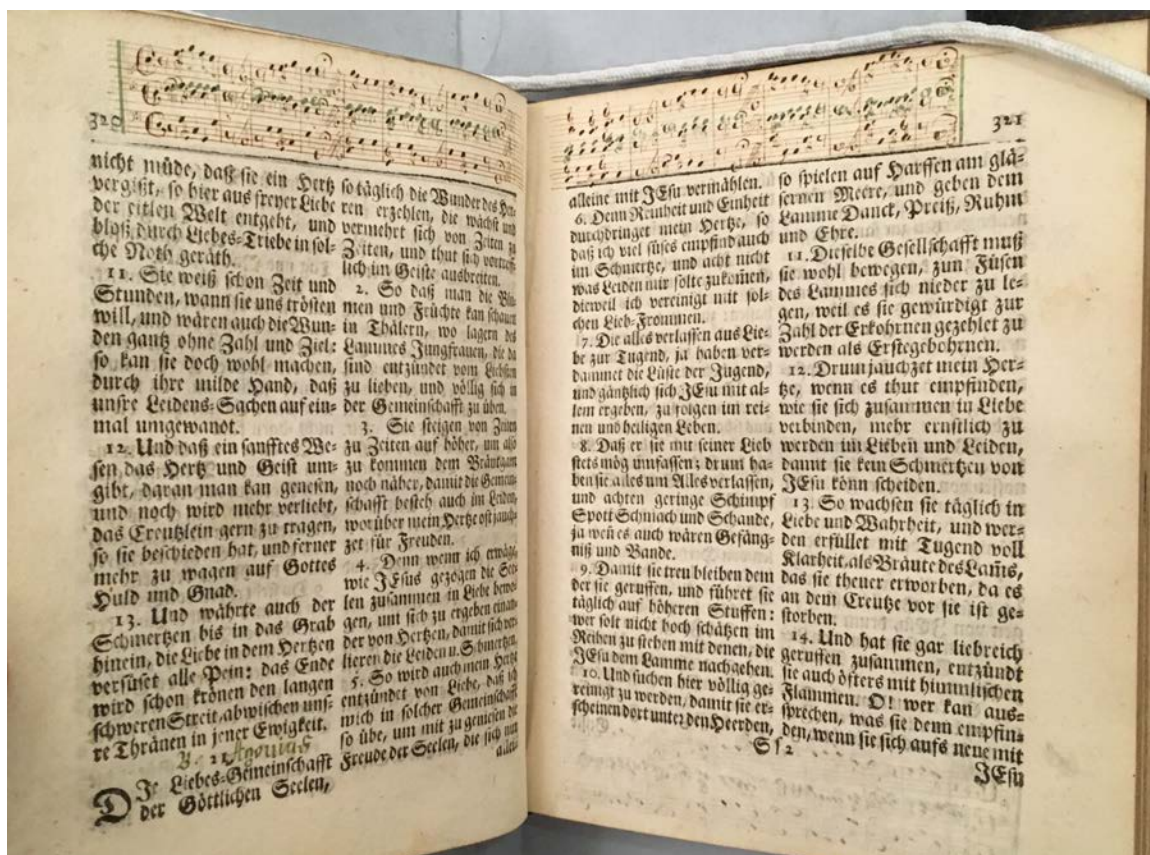 320
nicht müde, daß sie ein Hertz
vergißt, so hier aus freyer Liebe
der eitlen Welt entgeht, und
bloß durch Liebes-Triebe in sol-
che Noth geräth.
11. Sie weiß schon Zeit und
Stunden, wann sie uns trösten
will, und wären auch die Wun-
den gantz ohne Zahl und Ziel:
so kan sie doch wohl machen,
durch ihre milde Hand, daß
unsre Leidens-Sachen auf ein-
mal umgewandt.
12. Und daß ein sanfftes We-
sen das Hertz und Geist um-
gibt, daran man kan genesen,
und noch wird mehr verliebt,
das Creutzlein gern zu tragen,
so sie beschieden hat, und ferner
mehr zu wagen auf Gottes
Huld und Gnad.
13. Und währte auch der
Schmertzen bis in das Grab
hinein, die Liebe in dem Hertzen
versüset alle Pein: das Ende
wird schon krönen den langen
schweren Streit, abwischen uns-
re Thränen in jener Ewigkeit.
21
DJe Liebes-Gemeinschafft
der Göttlichen Seelen,
so täglich die Wunder des Her-
ren erzehlen, die wächst und
vermehrt sich von Zeiten zu
Zeiten, und thut sich vortreff-
lich im Geiste ausbreiten.
2. So daß man die Blu-
men und Früchte kan schauen
in Thälern, wo lagern des
Lammes Jungfrauen, die da
sind entzündet vom Liebsten
zu lieben, und völlig sich in
der Gemeinschafft zu üben.
3. Sie steigen von Zeiten
zu Zeiten auf höher, um also
zu kommen dem Bräutgam
noch näher, damit die Gemein-
schafft besteh auch im Leiden,
worüber mein Hertze oft jauch-
zet für Freuden.
4. Denn wenn ich erwäge,
wie JEsus gezogen die See-
len zusammen in Liebe bewo-
gen, um sich zu ergeben einan-
der von Hertzen, damit sich ver-
lieren die Leiden u. Schmertzen.
5. So wird auch mein Hertze
entzündet von Liebe, daß ich
mich in solcher Gemeinschafft
so übe, um mit zu geniesen die
Freude der Seelen, die sich nur
alleine
321
alleine mit JEsu vermählen.
6. Denn Reinheit und Einheit
durchdringet mein Hertze, so
daß ich viel süses empfind auch
im Schmertze, und acht nicht
was Leiden mir solte zukomen,
dieweil ich vereinigt mit sol-
chen Lieb-Frommen.
7. Die alles verlassen aus Lie-
be zur Tugend, ja haben ver-
dammet die Lüste der Jugend,
und gäntzlich sich JEsu mit al-
lem ergeben, zu folgen im rei-
nen und heiligen Leben.
8. Daß er sie mit seiner Lieb
stets mög umfassen; drum ha-
ben sie alles um Alles verlassen,
und achten geringe Schimpf
Spott Schmach und Schande,
ja weñ es auch wären Gefäng-
niß und Bande.
9. Damit sie treu bleiben dem
der sie geruffen, und führet sie
täglich auf höheren Stuffen:
wer solt nicht hoch schätzen im
Reihen zu stehen mit denen, die
JEsu dem Lamme nachgehen.
10. Und suchen hier völlig ge-
reinigt zu werden, damit sie er-
scheinen dort unter den Heerden,
so spielen auf Harffen am glä-
sernen Meere, und geben dem
Lamme Danck, Preiß, Ruhm
und Ehre.
11. Dieselbe Gesellschafft muß
sie wohl bewegen, zun Füsen
des Lammes sich nieder zu le-
gen, weil es sie gewürdigt zur
Zahl der Erkohrnen gezehlet zu
werden als Erstegebohrnen.
12. Drum jauchzet mein Her-
tze, wenn es thut empfinden,
wie sie sich zusammen in Liebe
verbinden, mehr ernstlich zu
werden im Lieben und Leiden,
damit sie kein Schmertzen von
JEsu könn scheiden.
13. So wachsen sie täglich in
Liebe und Wahrheit, und wer-
den erfüllet mit Tugend voll
Klarheit, als Bräute des Lam̃s,
das sie theuer erworben, da es
an dem Creutze vor sie ist ge-
storben.
14. Und hat sie gar liebreich
geruffen zusammen, entzündt
sie auch öfters mit himmlischen
Flammen. O! wer kan aus-
sprechen, was sie denn empfin-
den, wenn sie sich aufs neue mit
Ss 2
JEsu